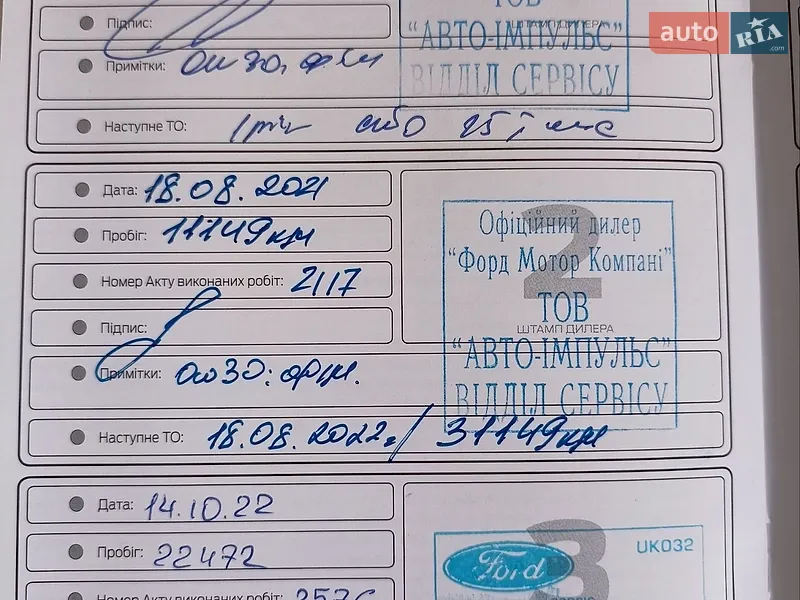 Підпис:
ТОВ
ШТАМП ДИЛЕРА
"АВТО-ІМПУЛЬС"
ВІДДІЛ СЕРВІСУ
auto RIA .com
Примітки:
Наступне ТО: або 15
Дата: 18.08.2021
Пробіг: 11149км
Номер Акту виконаних робіт: 2117
Підпис:
Примітки: 0w30.
Наступне ТО: 18.08.2022. / 31149км
2
Офіційний дилер
"Форд Мотор Компані"
ТОВ
ШТАМП ДИЛЕРА
"АВТО-ІМПУЛЬС"
ВІДДІЛ СЕРВІСУ
Дата: 14.10.22
Пробіг: 22472
Номер Акту виконаних робіт:
3
Ford
UK032